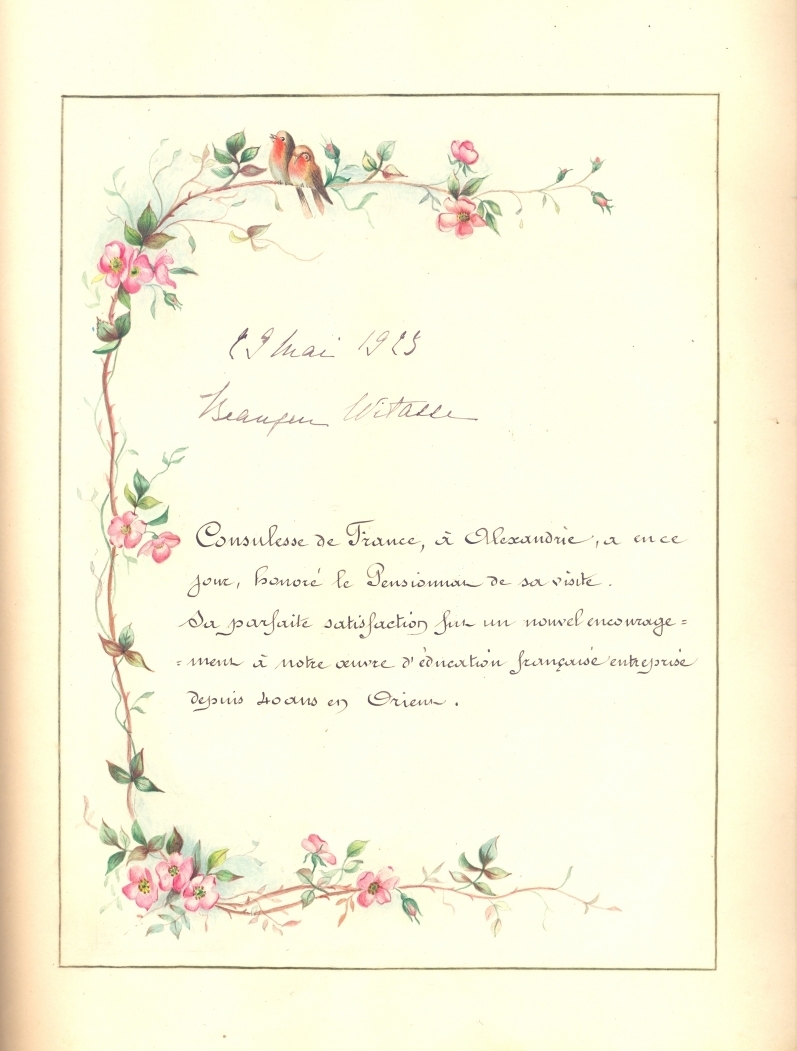 29 Mai 1925
Witasse
Consulesse de France, à Alexandrie, a en ce
jour, honoré le Pensionnat de sa visite.
Sa parfaite satisfaction fut un nouvel encourage=
=ment à notre œuvre d'éducation française entreprise
depuis 40 ans en Orient.